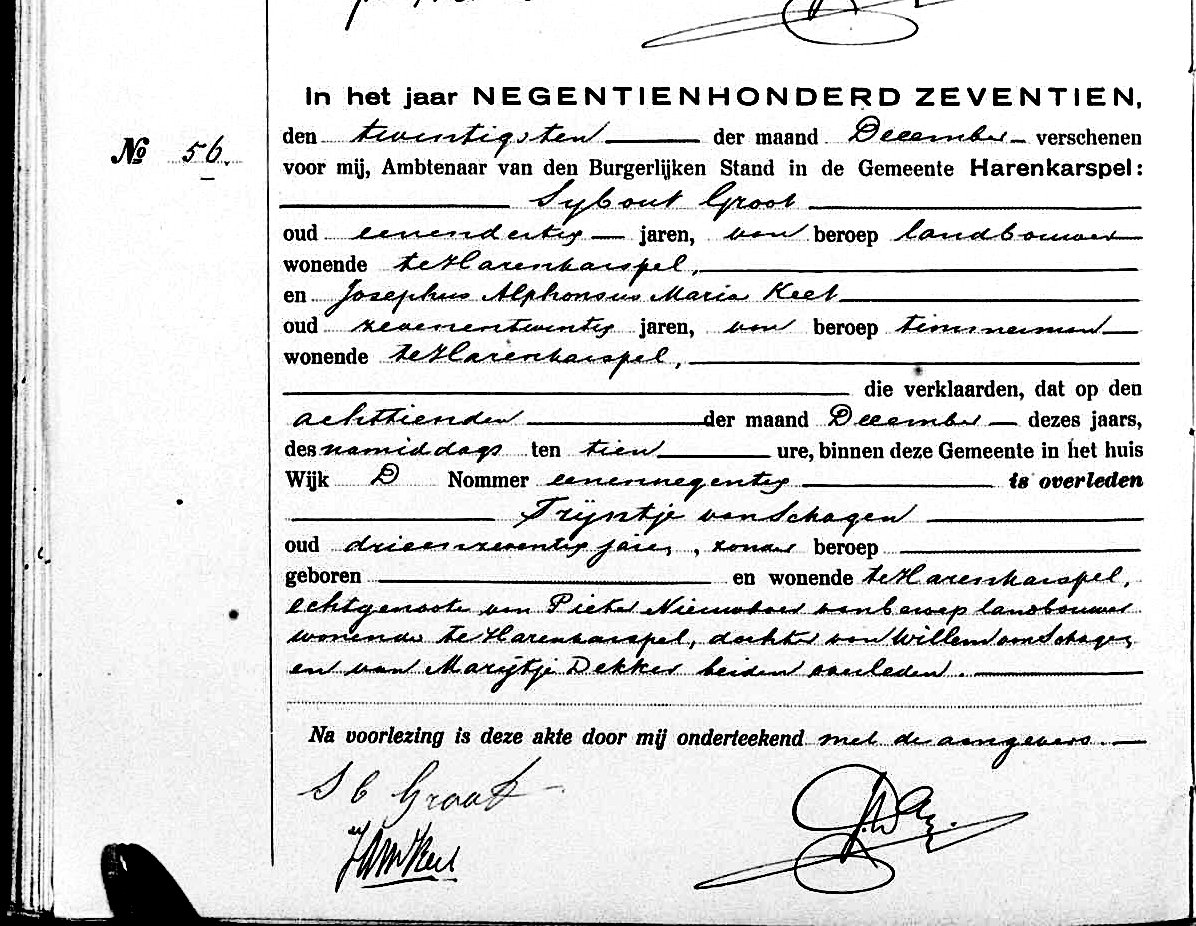 In het jaar NEGENTIENHONDERD ZEVENTIEN,
den twintigsten der maand December verschenen
No 56.
voor mij, Ambtenaar van den Burgerlijken Stand in de Gemeente Harenkarspel:
Sybout Groot
oud eenendertig jaren, van beroep landbouwer
wonende te Harenkarspel,
en Josephus Alphonsus Maria Keet
oud zevenentwintig jaren, van beroep timmerman
wonende te Harenkarspel,
die verklaarden, dat op den
achttienden der maand December dezes jaars,
des namiddags ten tien ure, binnen deze Gemeente in het huis
Wijk D Nommer eenennegentig is overleden
Trijntje van Schagen
oud drieenzeventig jaren, zonder beroep
geboren en wonende te Harenkarspel,
echtgenoote van Pieter Nieuwboer van beroep landbouwer
wonende te Harenkarspel, dochter van Willem van Schagen
en van Marijtje Dekker beiden overleden.
Na voorlezing is deze akte door mij onderteekend met de aangevers.
S C Groot
JAM Keet